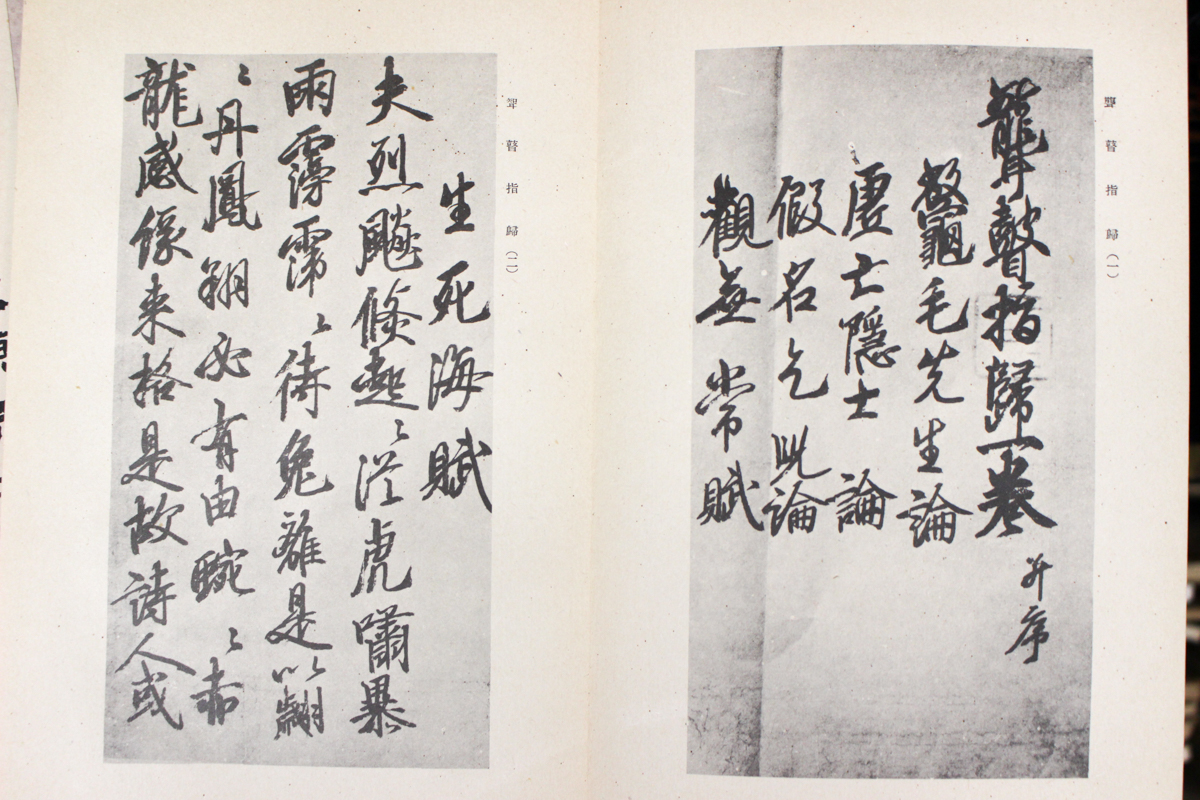 聾瞽指歸(一)
聾瞽指歸一卷 并序
鼈毛先生論
虛亡隱士論
假名乞兒論
觀無常賦
聾瞽指歸(二)
生死海賦
夫烈飈倏起〻從虎嘯暴
雨霶霈〻待兔離是以翩
〻丹鳳翔必有由蜿〻赤
龍感像来格是故詩人或